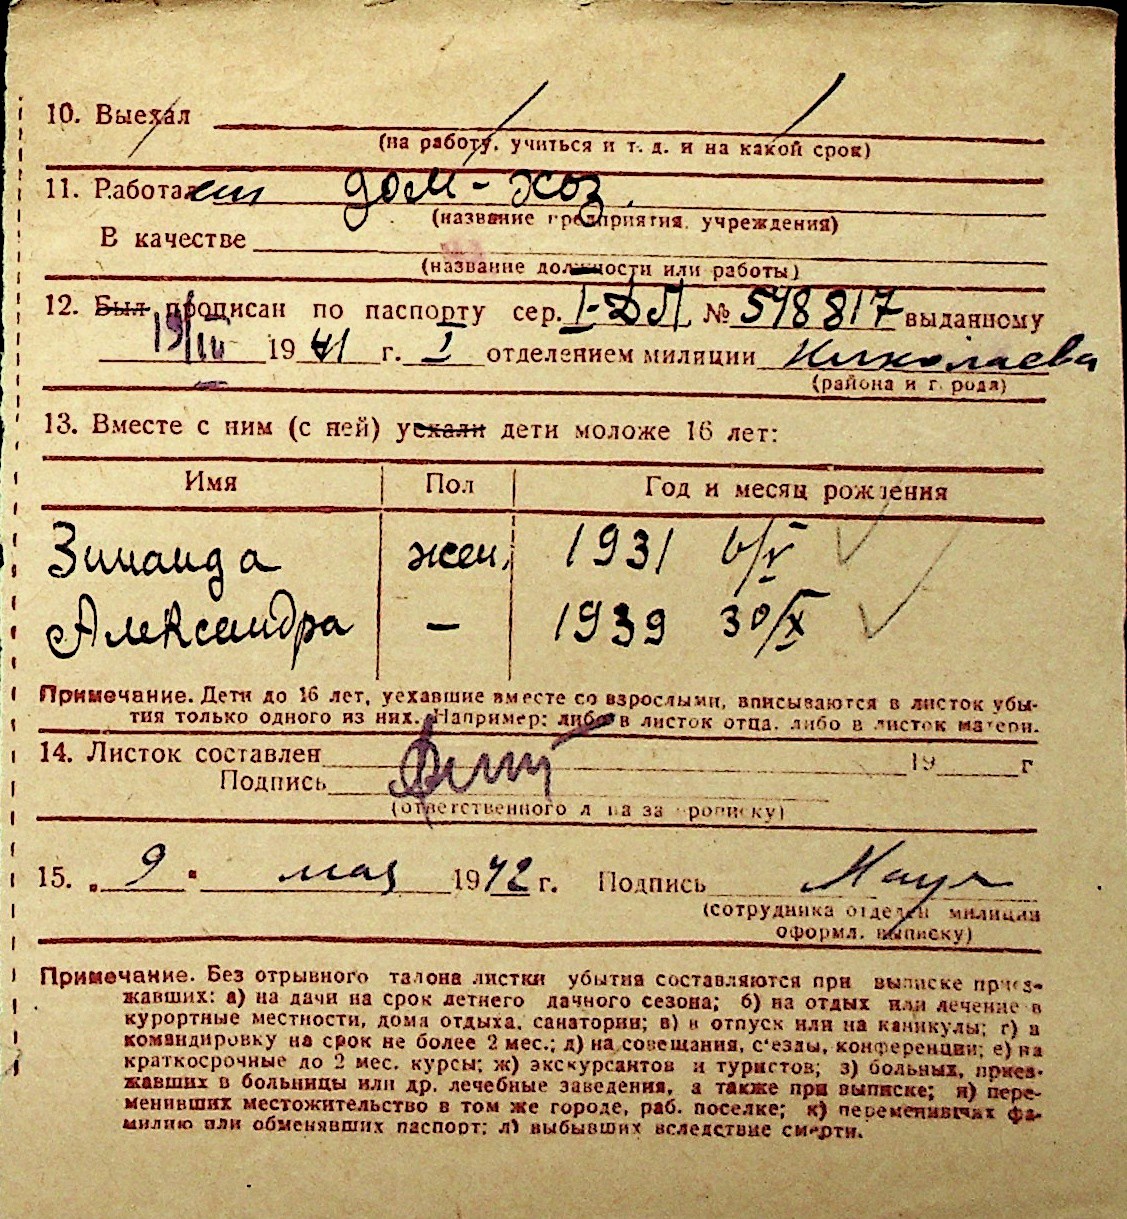 10. Выехал
(на работу, учиться и т. д. и на какой срок)
11. Работает дом-хоз.
(название предприятия, учреждения)
В качестве
(название должности или работы)
12. Был прописан по паспорту сер. I-ДП № 548817 выданному
19/III 1941 г. I отделением милиции Николаева
(района и г. рода)
13. Вместе с ним (с ней) уехали дети моложе 16 лет:
Имя Пол Год и месяц рождения
Зинаида жен. 1931 6/V
Александра — 1939 30/X
Примечание. Дети до 16 лет, уехавшие вместе со взрослыми, вписываются в листок убы-
тия только одного из них. Например: либо в листок отца, либо в листок матери.
14. Листок составлен 19 г
Подпись
(ответственного лица за прописку)
15. „ 9 " мая 1942 г. Подпись
(сотрудника отделен милиции
оформл. выписку)
Примечание. Без отрывного талона листки убытия составляются при выписке приез-
жавших: а) на дачи на срок летнего дачного сезона; б) на отдых или лечение в
курортные местности, дома отдыха, санатории; в) в отпуск или на каникулы; г) в
командировку на срок не более 2 мес.; д) на совещания, с'езды, конференции; е) на
краткосрочные до 2 мес. курсы; ж) экскурсантов и туристов; з) больных, приез-
жавших в больницы или др. лечебные заведения, а также при выписке; и) пере-
менивших местожительство в том же городе, раб. поселке; к) переменивших фа-
милию или обменявших паспорт; л) выбывших вследствие смерти.